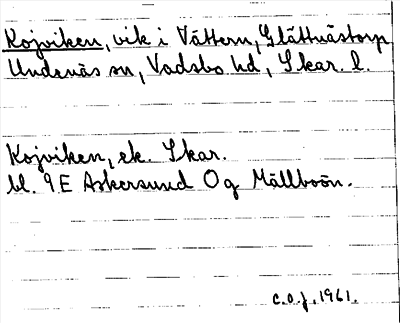 Kojviken, vik i Vättern, Glättnästorp
Undenäs sn, Vadsbo hd, Skar. l.
Kojviken, ek. Skar.
bl. 9E Askersund Og Mällboön.
C.O.J. 1961.